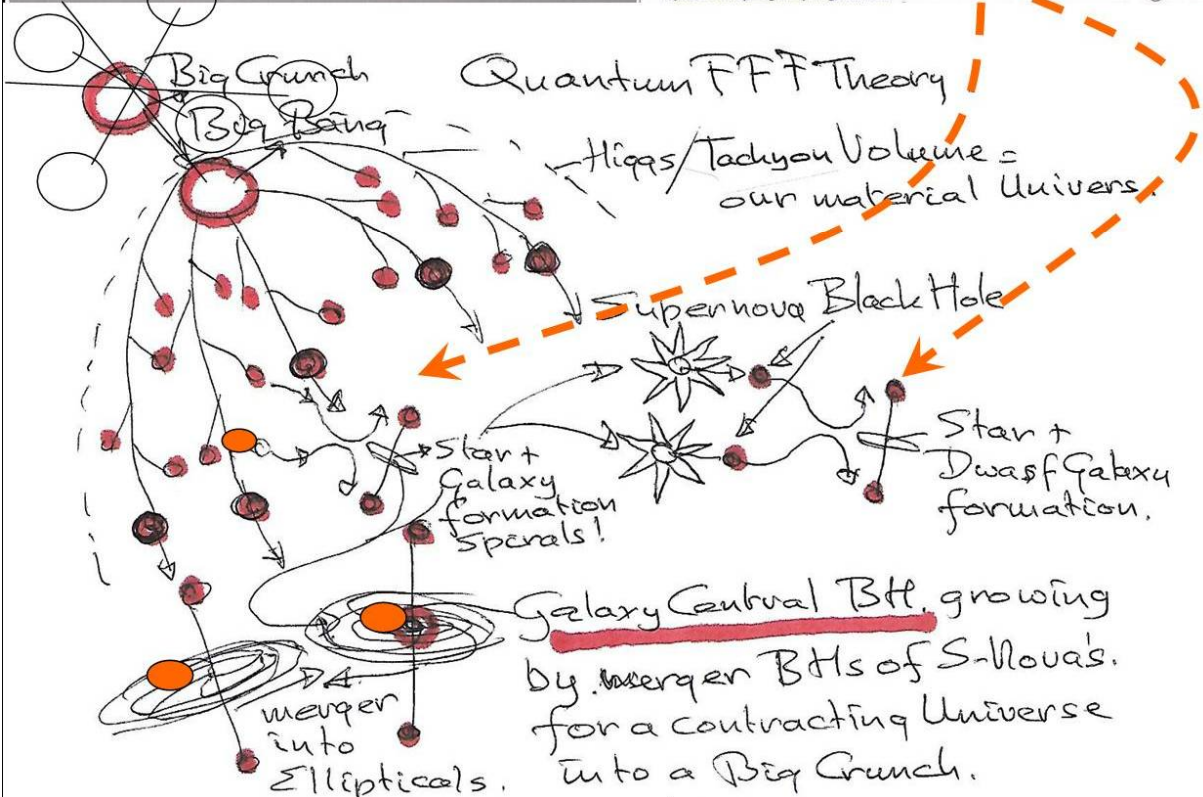 Big Crunch
Big Bang
Quantum FFF Theory
Higgs/Tachyon Volume =
our material Univers.
Supernova Black Hole
Star +
Galaxy
formation
spirals!
Star +
Dwasf Galaxy
formation.
Galaxy Central BH. growing
by merger BHs of S-Nova's.
for a contracting Universe
into a Big Crunch.
merger
into
Ellipticals.